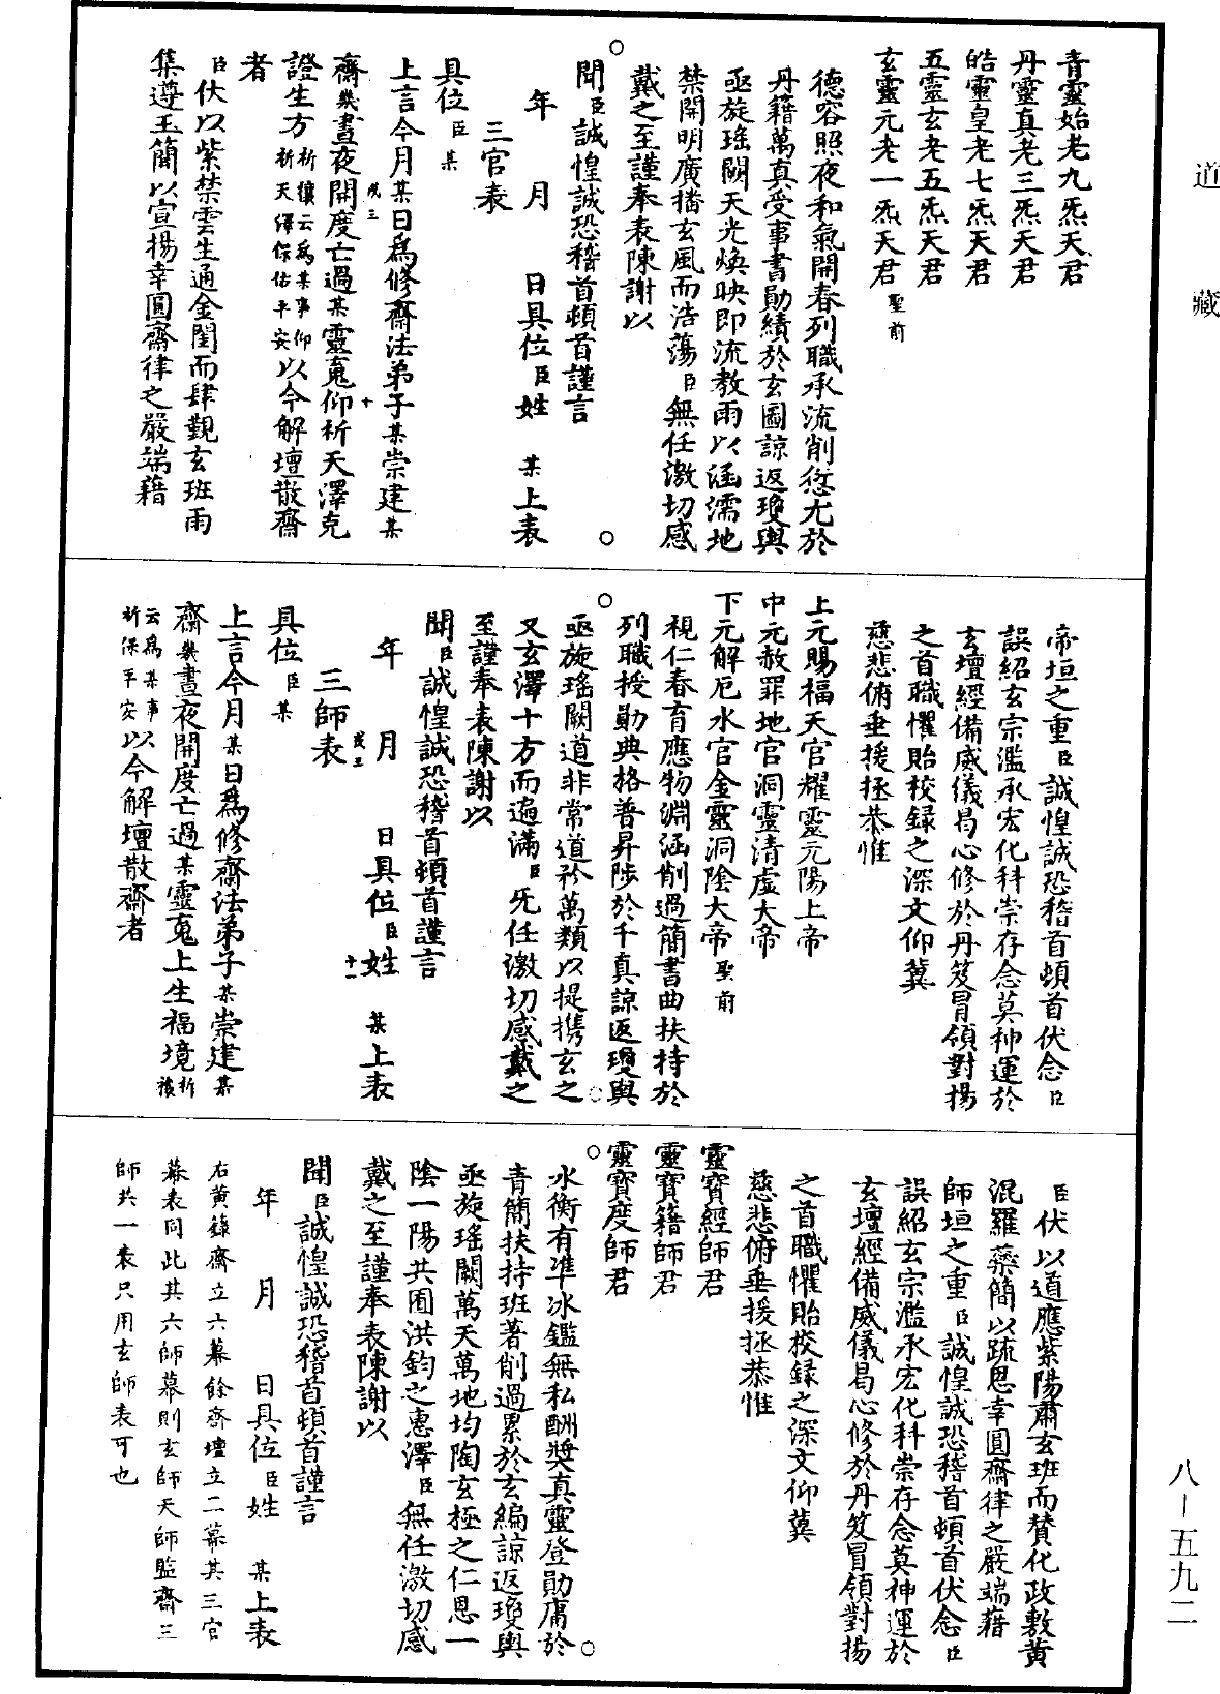 道藏
青靈始老九炁天君
丹靈真老三炁天君
皓靈皇老七炁天君
五靈玄老五炁天君
玄靈元老一炁天君聖前
德容照夜和氣開春列職承流削愆尤於
丹籍萬真受事書勛績於玄圖諒返瓊輿
亟旋瑤闕天光煥映即流教雨以涵濡地
禁開明廣播玄風而浩蕩臣無任激切感
戴之至謹奉表陳謝以
聞臣誠惶誠恐稽首頓首謹言
年 月 日具位臣姓 某上表
三官表
具位臣某
上言今月某日爲修齋法弟子某崇建某
齋幾晝夜開度亡過某靈䰟仰祈天澤克
證生方祈禳云爲某事仰祈天澤保佑平安以今解壇散齋
者
臣伏以紫禁雲生通金闈而肆覲玄班雨
集遵玉簡以宣揚幸圓齋律之嚴端藉
帝垣之重臣誠惶誠恐稽首頓首伏念臣
誤紹玄宗濫承宏化科崇存念莫神運於
玄壇經備威儀曷心修於丹笈冒領對揚
之首職懼貽校録之深文仰冀
慈悲俯垂援拯恭惟
上元賜福天官耀靈元陽上帝
中元赦罪地官洞靈清虛大帝
下元解厄水官金靈洞陰大帝聖前
視仁春育應物淵涵削過簡書曲扶持於
列職授勛典格普昇陟於千真諒返瓊輿
亟旋瑤闕道非常道衿萬類以提携玄之
又玄澤十方而遍滿臣旡任激切感戴之
至謹奉表陳謝以
聞臣誠惶誠恐稽首頓首謹言
年 月 日具位臣姓 某上表
三師表
具位臣某
上言今月某日爲修齋法弟子某崇建某
齋幾晝夜開度亡過某靈䰟上生福境祈禳
云爲某事祈保平安以今解壇散齋者
臣伏以道應紫陽肅玄班而賛化政敷黄
混羅蘂簡以疏恩幸圓齋律之嚴端藉
師垣之重臣誠惶誠恐稽首頓首伏念臣
誤紹玄宗濫承宏化科崇存念莫神運於
玄壇經備威儀曷心修於丹笈冒領對揚
之首職懼貽校録之深文仰冀
慈悲俯垂援拯恭惟
靈寶經師君
靈寶籍師君
靈寶度師君
水衡有準冰鑑無私酬奬真靈登勛庸於
青簡扶持班著削過累於玄編諒返瓊輿
亟旋瑤闕萬天萬地均陶玄極之仁恩一
陰一陽共囿洪鈞之惠澤臣無任激切感
戴之至謹奉表陳謝以
聞臣誠惶誠恐稽首頓首謹言
年 月 日具位臣姓 某上表
右黄籙齋立六幕餘齊壇立二幕其三官
幕表同此其六師幕則玄師天師監齋三
師共一表只用玄師表可也
八－五九二